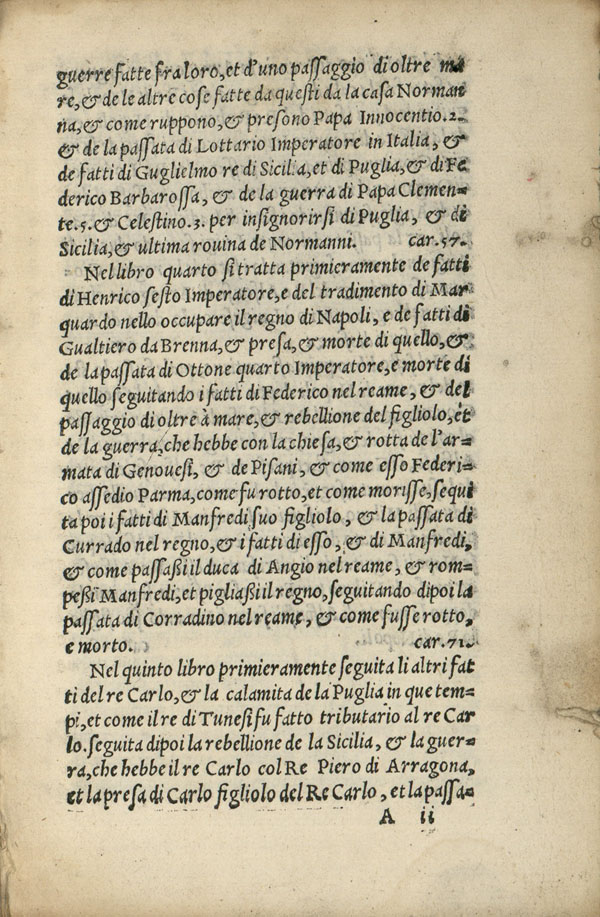 guerre fatte fra loro, et d'uno passaggio di oltre ma
re, & de le altre cose fatte da questi da la casa Norman
na, & come ruppono, & presono Papa Innocentio .2.
& de la passata di Lottario Imperatore in Italia, &
de fatti di Guglielmo re di Sicilia, et di Puglia, & di Fe
derico Barbarossa, & de la guerra di Papa Clemen=
te .5. & Celestino .3. per insignorirsi di Puglia, & di
Sicilia, & ultima rouina de Normanni. car. 57.
Nel libro quarto si tratta primieramente de fatti
di Henrico sesto Imperatore, e del tradimento di Mar
quardo nello occupare il regno di Napoli, e de fatti di
Gualtiero da Brenna, & presa, & morte di quello, &
de la passata di Ottone quarto Imperatore, e morte di
quello seguitando i fatti di Federico nel reame, & del
passaggio di oltre à mare, & rebellione del figliolo, et
de la guerra, che hebbe con la chiesa, & rotta de l'ar=
mata di Genouesi, & de Pisani, & come esso Federi=
co assedio Parma, come fu rotto, et come morisse, sequi
ta poi i fatti di Manfredi suo figliolo, & la passata di
Currado nel regno, & i fatti di esso, & di Manfredi,
& come passaßi il duca di Angio nel reame, & rom=
peßi Manfredi, et pigliaßi il regno, seguitando dipoi la
passata di Corradino nel reame, & come fusse rotto,
e morto. car. 71.
Nel quinto libro primieramente seguita li altri fat
ti del re Carlo, & la calamita de la Puglia in que tem=
pi, et come il re di Tunesi fu fatto tributario al re Car
lo. seguita dipoi la rebellione de la Sicilia, & la guer=
ra, che hebbe il re Carlo col Re Piero di Arragona,
et la presa di Carlo figliolo del Re Carlo, et la passa=
A ii